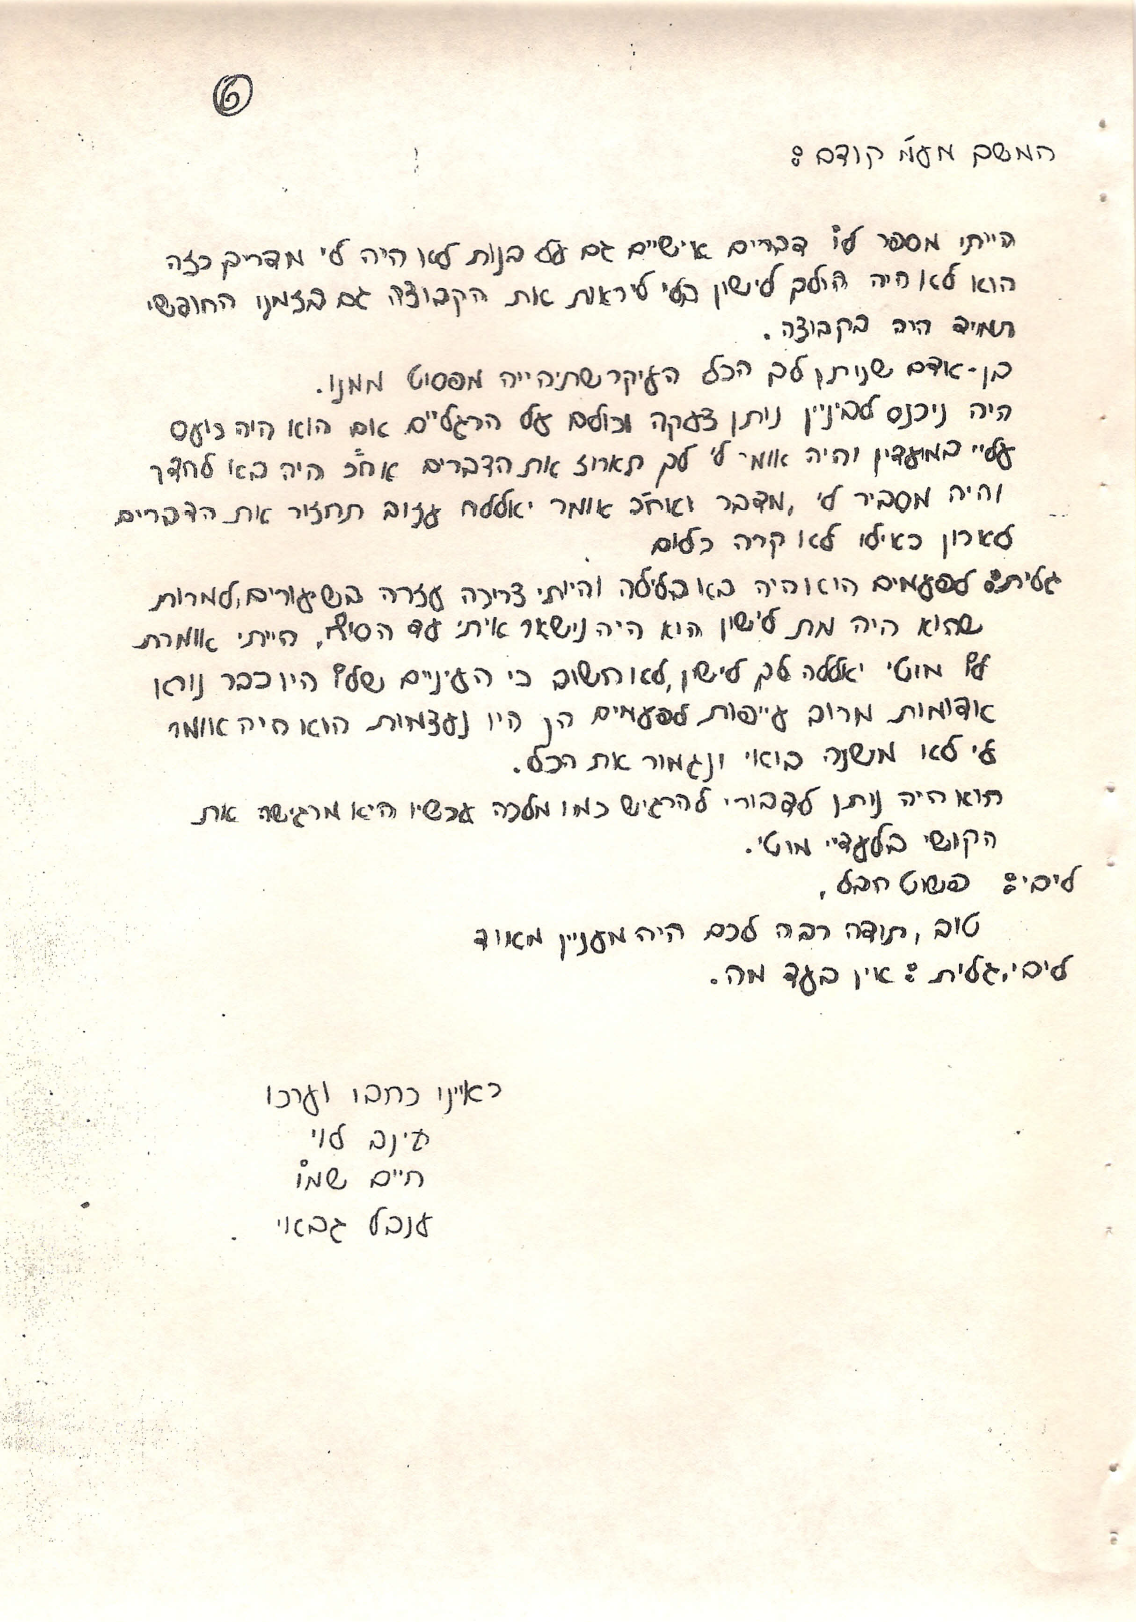 6
המשך מעמ' קודם:
הייתי מספר לו דברים אישיים גם על בנות לא היה לי מדריך כזה
הוא לא היה הולך לישון בלי ליראות את הקבוצה גם בזמנו החופשי
תמיד היה בקבוצה.
בן-אדם שנותן לב הכל העיקר שתיהייה מפסוט ממנו.
היה ניכנס לביניין נותן צעקה וכולם על הרגליים אום הוא היה כועס
עליי במועדון והיה אומר לי לך תארוז את הדברים אח"כ היה בא לחדר
והיה מסביר לי, מדבר ואח"כ אומר יאללה עזוב תחזור את הדברים
לארון כאילו לא קרה כלום
גלית: לפעמים הוא היה בא בלילה והייתי צריכה עזרה בשיעורים, למרות
שהוא היה מת לישון הוא היה נישאר איתי עד הסוף, הייתי אומרת
לו מוטי יאללה לך לישון, לא חשוב כי העיניים שלו היו כבר נורא
אדומות מרוב עייפות לפעמים הן היו נעצמות הוא היה אומר
לי לא משנה בואי ונגמור את הכל.
הוא היה נותן לדבורי להרגיש כמו מלכה עכשיו היא מרגישה את
הקושי בלעדיי מוטי.
ליבי: פשוט חבל,
טוב, תודה רבה לכם היה מעניין מאוד
ליבי, גלית: אין בעד מה.
ראיינו כתבו וערכו
עינב לוי
חיים שמו
ענבל גבאוי